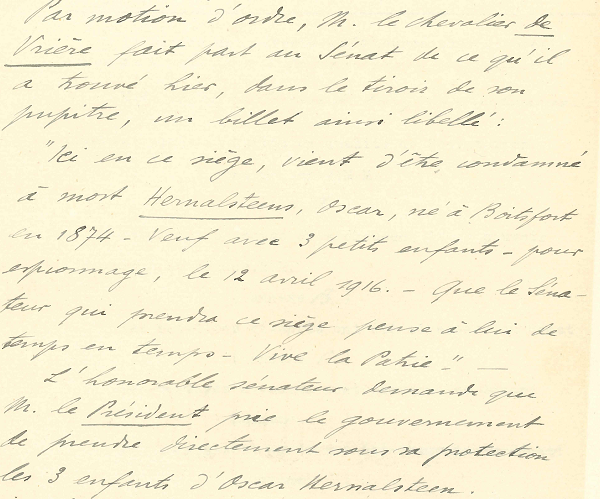 Par motion d'ordre, M. le chevalier de
Vrière fait part au Sénat de ce qu'il
a trouvé hier, dans le tiroir de son
pupitre, un billet ainsi libellé :
"Ici en ce siège, vient d'être condamné
à mort Hernalsteens, Oscar, né à Boitsfort
en 1874 - Veuf avec 3 petits enfants - pour
espionnage, le 12 avril 1916. - Que le Séna-
teur qui prendra ce siège pense à lui de
temps en temps - Vive la Patrie -" -
L'honorable sénateur demande que
M. le Président prie le gouvernement
de prendre directement sous sa protection
les 3 enfants d'Oscar Hernalsteen.